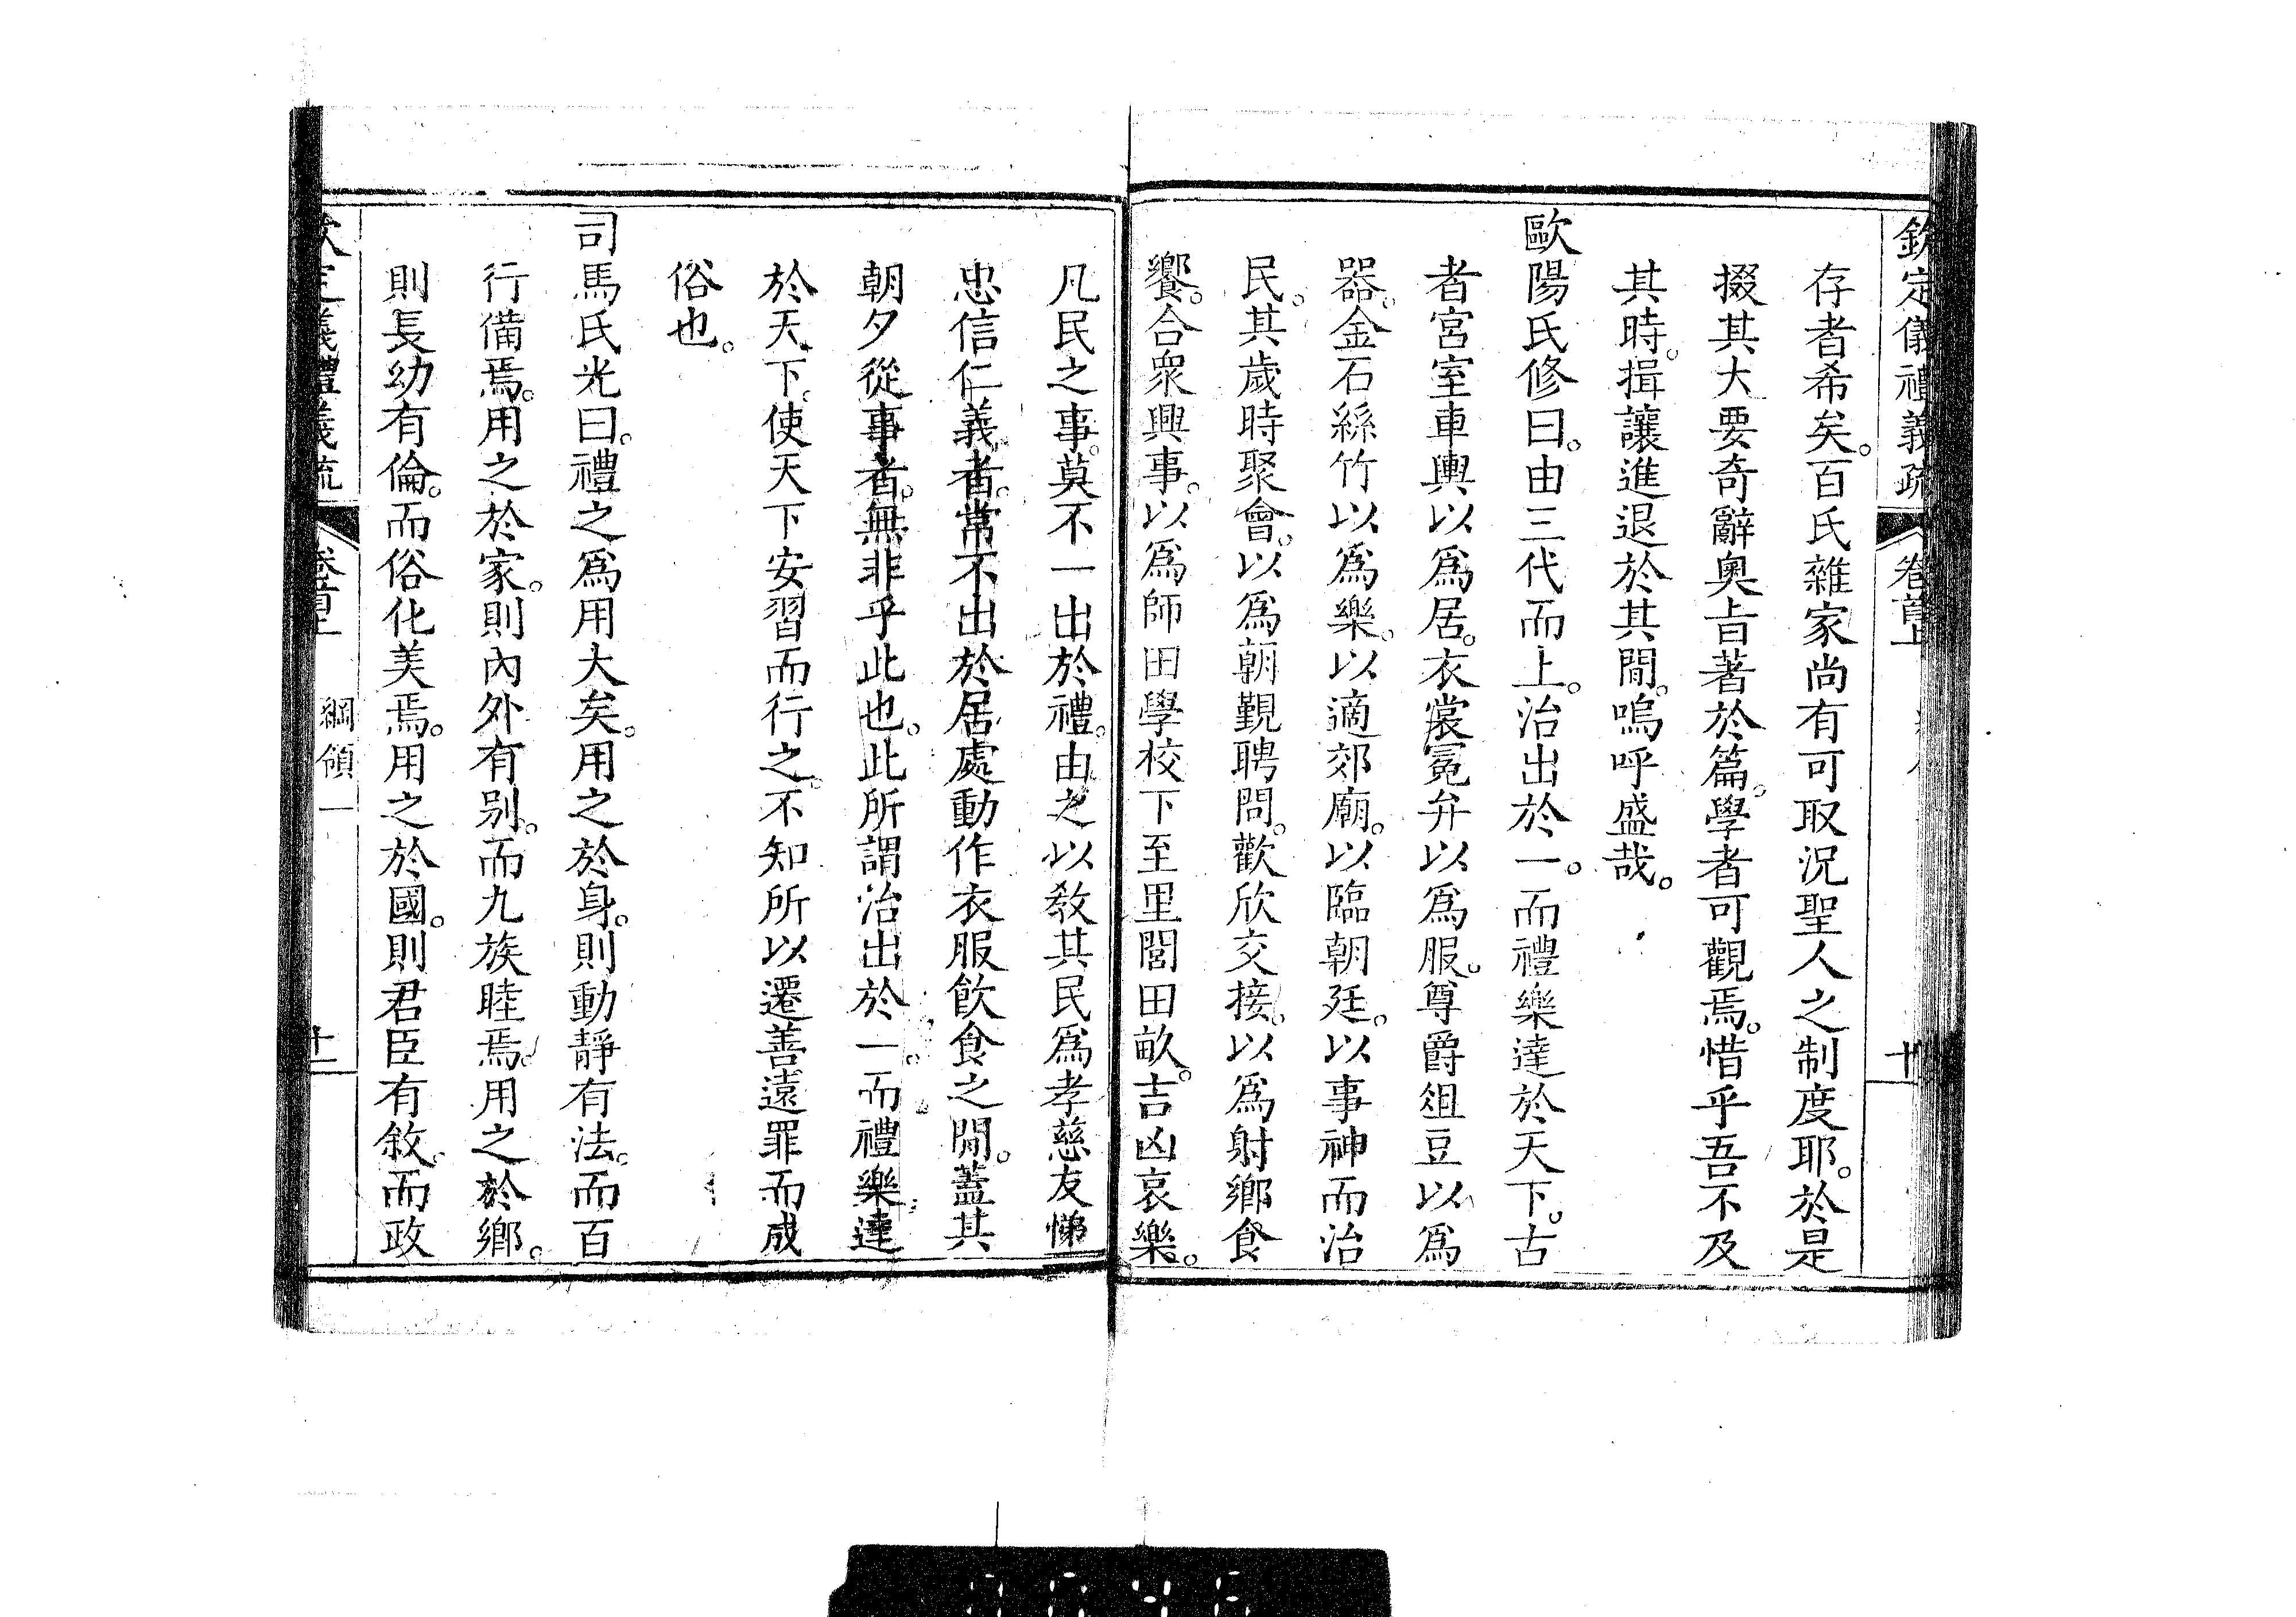 欽定儀禮義疏 卷首上 十
存者希矣。百氏雜家尚有可取況聖人之制度耶。於是
掇其大要奇辭奧旨著於篇。學者可觀焉。惜乎吾不及
其時。揖讓進退於其閒。嗚呼盛哉。
歐陽氏修曰。由三代而上。治出於一。而禮樂達於天下。古
者宮室車輿以爲居。衣裳冕弁以爲服。尊爵俎豆以爲
器。金石絲竹以爲樂。以適郊廟。以臨朝廷。以事神而治
民。其歲時聚會。以爲朝覲聘問。歡欣交接。以爲射鄉食
饗。合衆興事。以爲師田學校下至里閭田畝。吉凶哀樂。
凡民之事。莫不一出於禮。由之以敎其民爲孝慈友悌
忠信仁義者。常不出於居處動作衣服飮食之閒。蓋其
朝夕從事者。無非乎此也。此所謂治出於一。而禮樂達
於天下。使天下安習而行之。不知所以遷善遠罪而成
俗也。
司馬氏光曰。禮之爲用大矣。用之於身。則動靜有法。而百
行備焉。用之於家。則內外有別。而九族睦焉。用之於鄉。
則長幼有倫。而俗化美焉。用之於國。則君臣有敘。而政
欽定儀禮義疏 卷首上 綱領一 十一